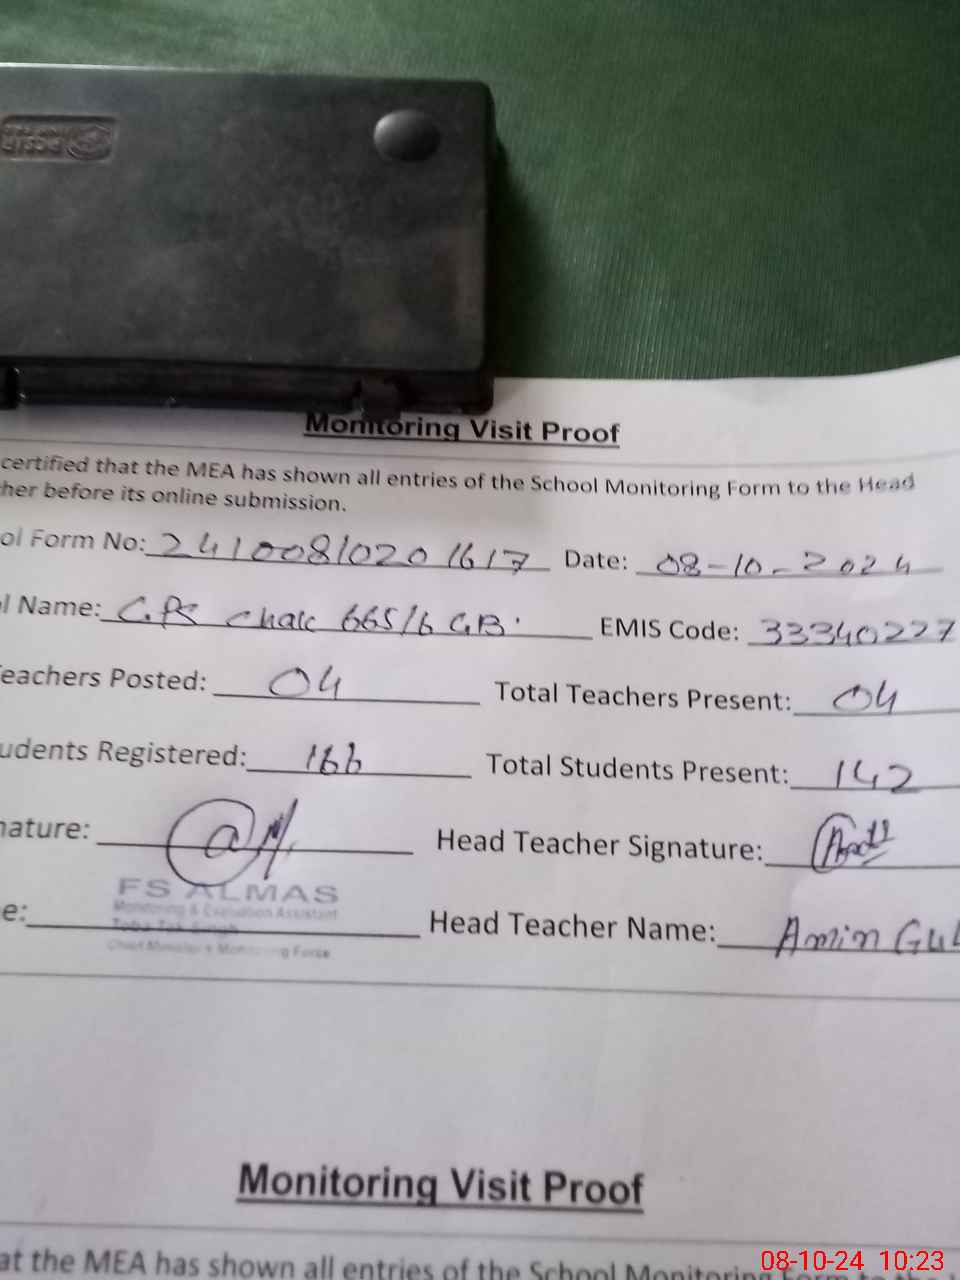 Monitoring Visit Proof
certified that the MEA has shown all entries of the School Monitoring Form to the Head
her before its online submission.
ol Form No: 24100810201617 Date: 08-10-2024
l Name: GPS Chak 665/6 GB. EMIS Code: 33340227
eachers Posted: 04 Total Teachers Present: 04
udents Registered: 166 Total Students Present: 142
nature: Head Teacher Signature:
FS ALMAS
Monitoring & Evaluation Assistant
Toba Tek Singh
Chief Minister's Monitoring Force
e: Head Teacher Name: Amin Gul
Monitoring Visit Proof
at the MEA has shown all entries of the School Monitoring Form
08-10-24 10:23